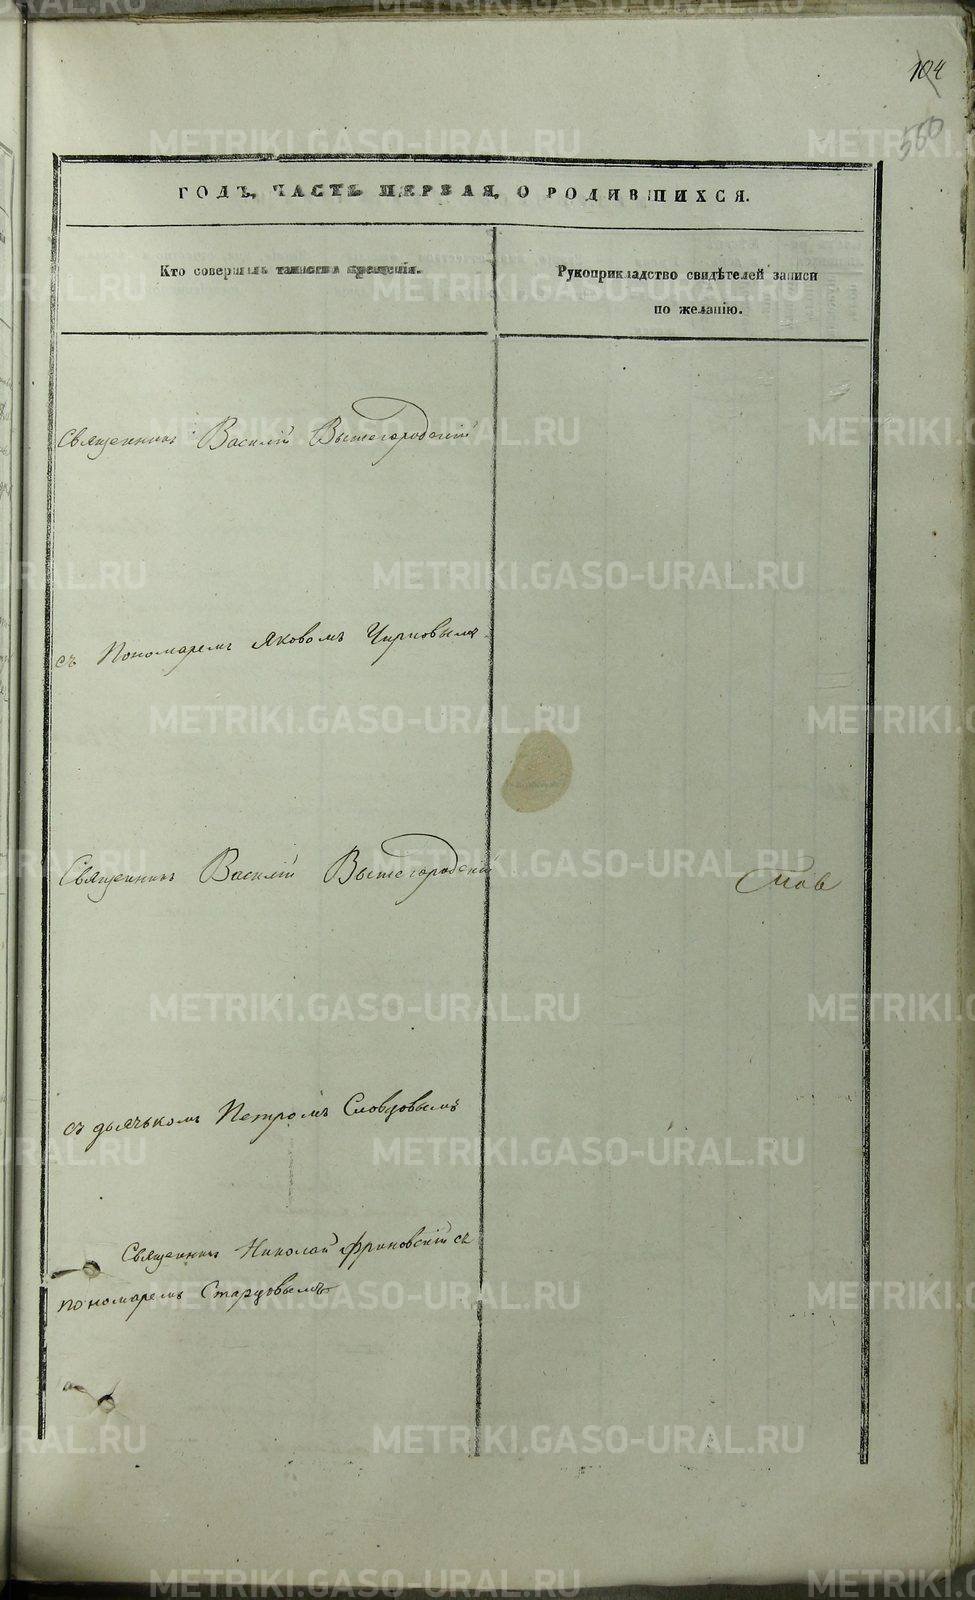 104
550
ГОДЪ, ЧАСТЬ ПЕРВАЯ, О РОДИВШИХСЯ.
Кто совершалъ таинство крещенія.
Рукоприкладство свидѣтелей записи
по желанію.
Священникъ Василій Вышегородскій
съ Пономаремъ Яковомъ Чирковымъ
Священникъ Василій Вышегородскій
съ дьячькомъ Петромъ Словцовымъ
Священникъ Николай Фриновскій съ
пономаремъ Старцовымъ
METRIKI.GASO-URAL.RU